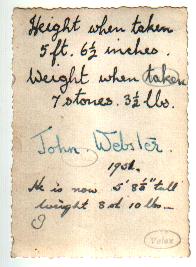 Height when taken
5 ft. 6½ inches.
Weight when taken
7 stones. 3½ lbs.
John Webster.
He is now 5' 8½" tall
weight 8 st 10 lbs —
Velox